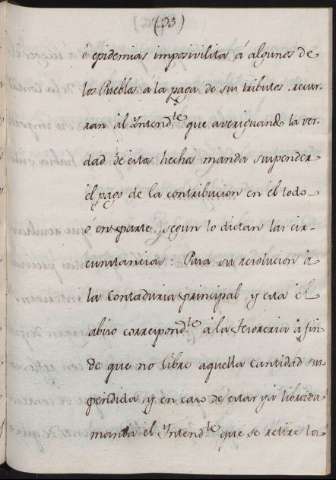 (33)
ó epidemias imposivilita á algunos de
los Pueblos a la paga de sus tributos recur-
ran al Intend.te que averiguand.e la ver-
dad de esta hecha manda suspender
el pago de la contribucion en el todo
ó en parte, segun lo dictan las cir-
cunstancias: Pasa su resolucion á
la Contaduria principal y esta el
abiso correspond.te a la Thesoreria á fin
de que no libre aquella cantidad sus-
pendida y en caso de estar ya librada
manda el Intend.te que se retire los